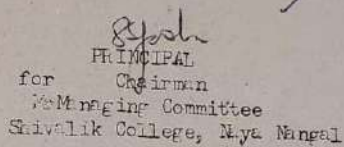 PRINCIPAL
for Chairman
Managing Committee
Shivalik College, Naya Nangal